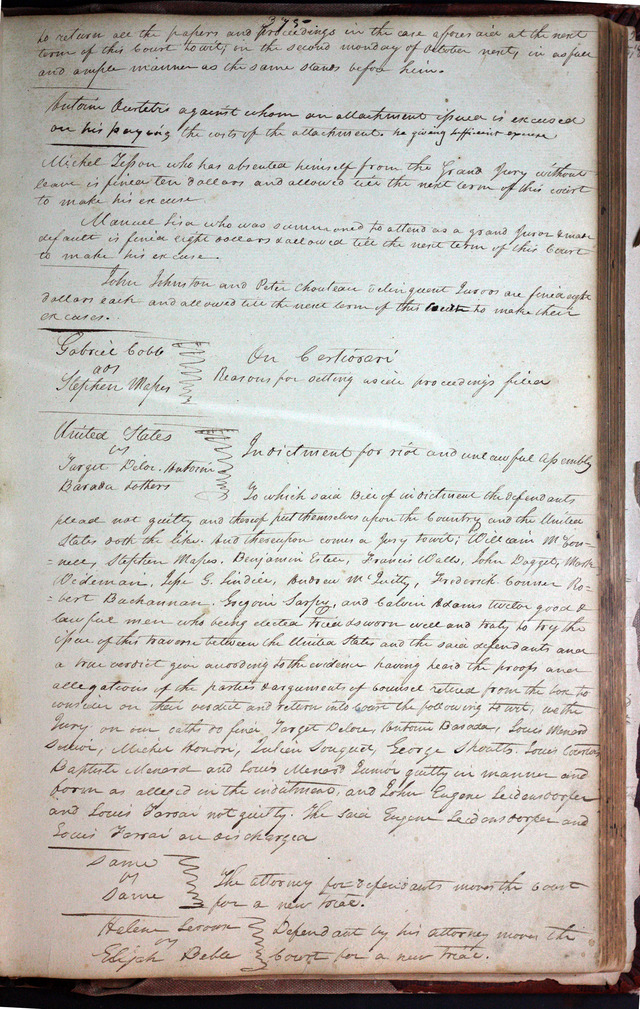 375
to return all the papers and proceedings in the case aforesaid at the next
term of this Court towit, on the second monday of October next, in as full
and ample manner as the same stands before him.
Antoin against whom an attachment issued is excused
on his paying the costs of the attachment. he giving sufficient excuse
Michel who has absented himself from the Grand Jury without
leave is fined ten dollars and allowed till the next term of this court
to make his excuse
Manuel Lisa who was summoned to attend as a grand Juror & made
default is fined eight dollars & allowed till the next term of this Court
to make his excuse.
John Johnston and Peter Chouteau delinquent Jurors are fined eight
dollars each and allowed till the next term of this Court to make their
excuses.
Gabriel Cobb
ads
Stephen Mapes
On Certiorari
Reasons for setting aside proceedings filed
United States
vs
Target Deloe. Antoine
Barada & others
Indictment for riot and unlawful assembly
To which said Bill of indictment the defendants
plead not guilty and thereof put themselves upon the Country and the United
States doth the like. And thereupon comes a Jury towit; William McCon=
=nell, Stephen Mapes, Benjamin Estell, Francis Wall, John Dagget, Mark
Wideman, Jesse G. Lindell, Andrew McQuitty, Frederick Conner Ro=
=bert Buchannan. Gregoire Sarpy, and Calvin Adams twelve good &
lawful men who being elected tried & sworn well and truly to try the
issue of this traverse between the United States and the said defendants and
a true verdict give according to the evidence having heard the proofs and
allegations of the parties & arguments of Counsel retired from the box to
consider on their verdict and return into Court the following towit, we the
Jury on our oaths do find Target Deloe, Antoine Barada, Louis Menard
Senior, Michel Honori, Julien Souquet, George Shoatts. Louis
Baptiste Menard and Louis Menard Junior guilty in manner and
form as alleged in the indictment, and John Eugene Leidensdorfer
and Louis Farrai not guilty. The said Eugene Leidensdorfer and
Louis Farrai are discharged
Same
vs
Same
The attorney for defendants moves the Court
for a new trial.
Helene
vs
Elijah
Defendant by his attorney moves the
Court for a new trial.